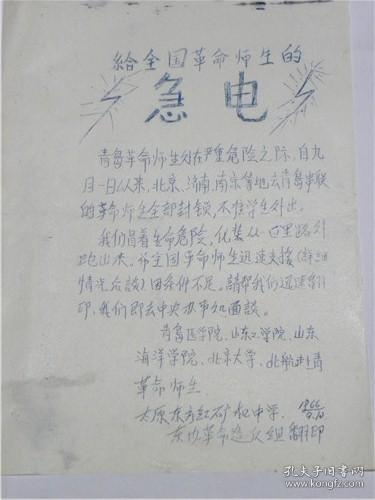 給全国革命师生的
急电
青岛革命师生处在严重危险之际，自九
月一日以来，北京、济南、南京等地去青岛串联
的革命师生全部封锁，不准学生外出。
我们冒着生命危险，化装从
跑出来，
情况后談）因条件不足。請帮我们迅速翻
印，我们即去中央办事处面談。
青岛医学院、山东工学院、山东
海洋学院、北京大学、北航赴青
革命师生
太原东方红矿机中学
革命造反组翻印